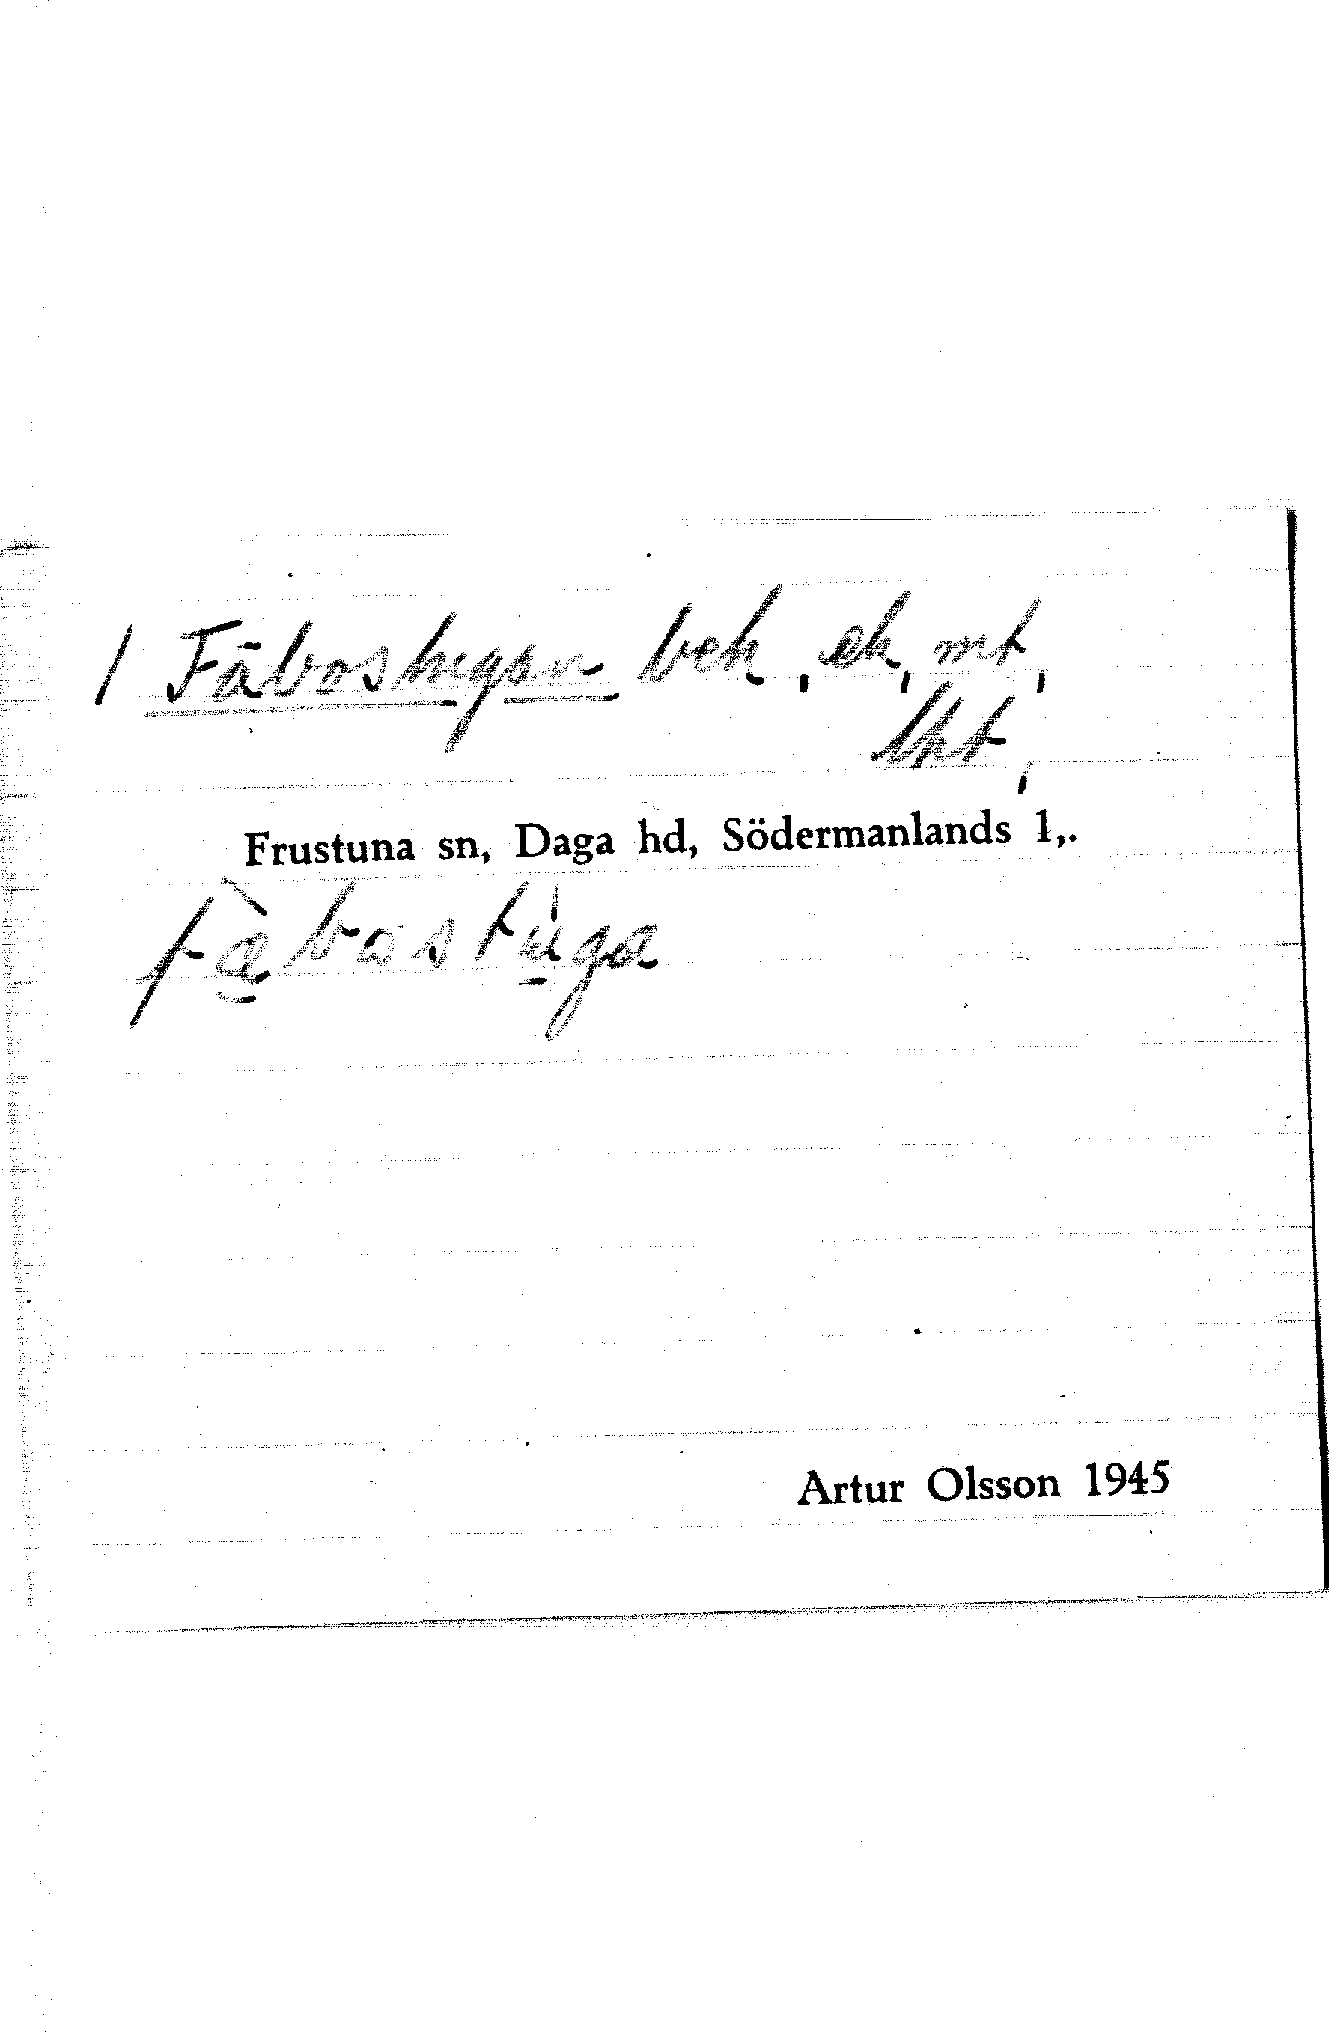 1 Fäbostugan bek, ek, mt,
tht,
Frustuna sn, Daga hd, Södermanlands l,.
fæ̀bostúga
Artur Olsson 1945